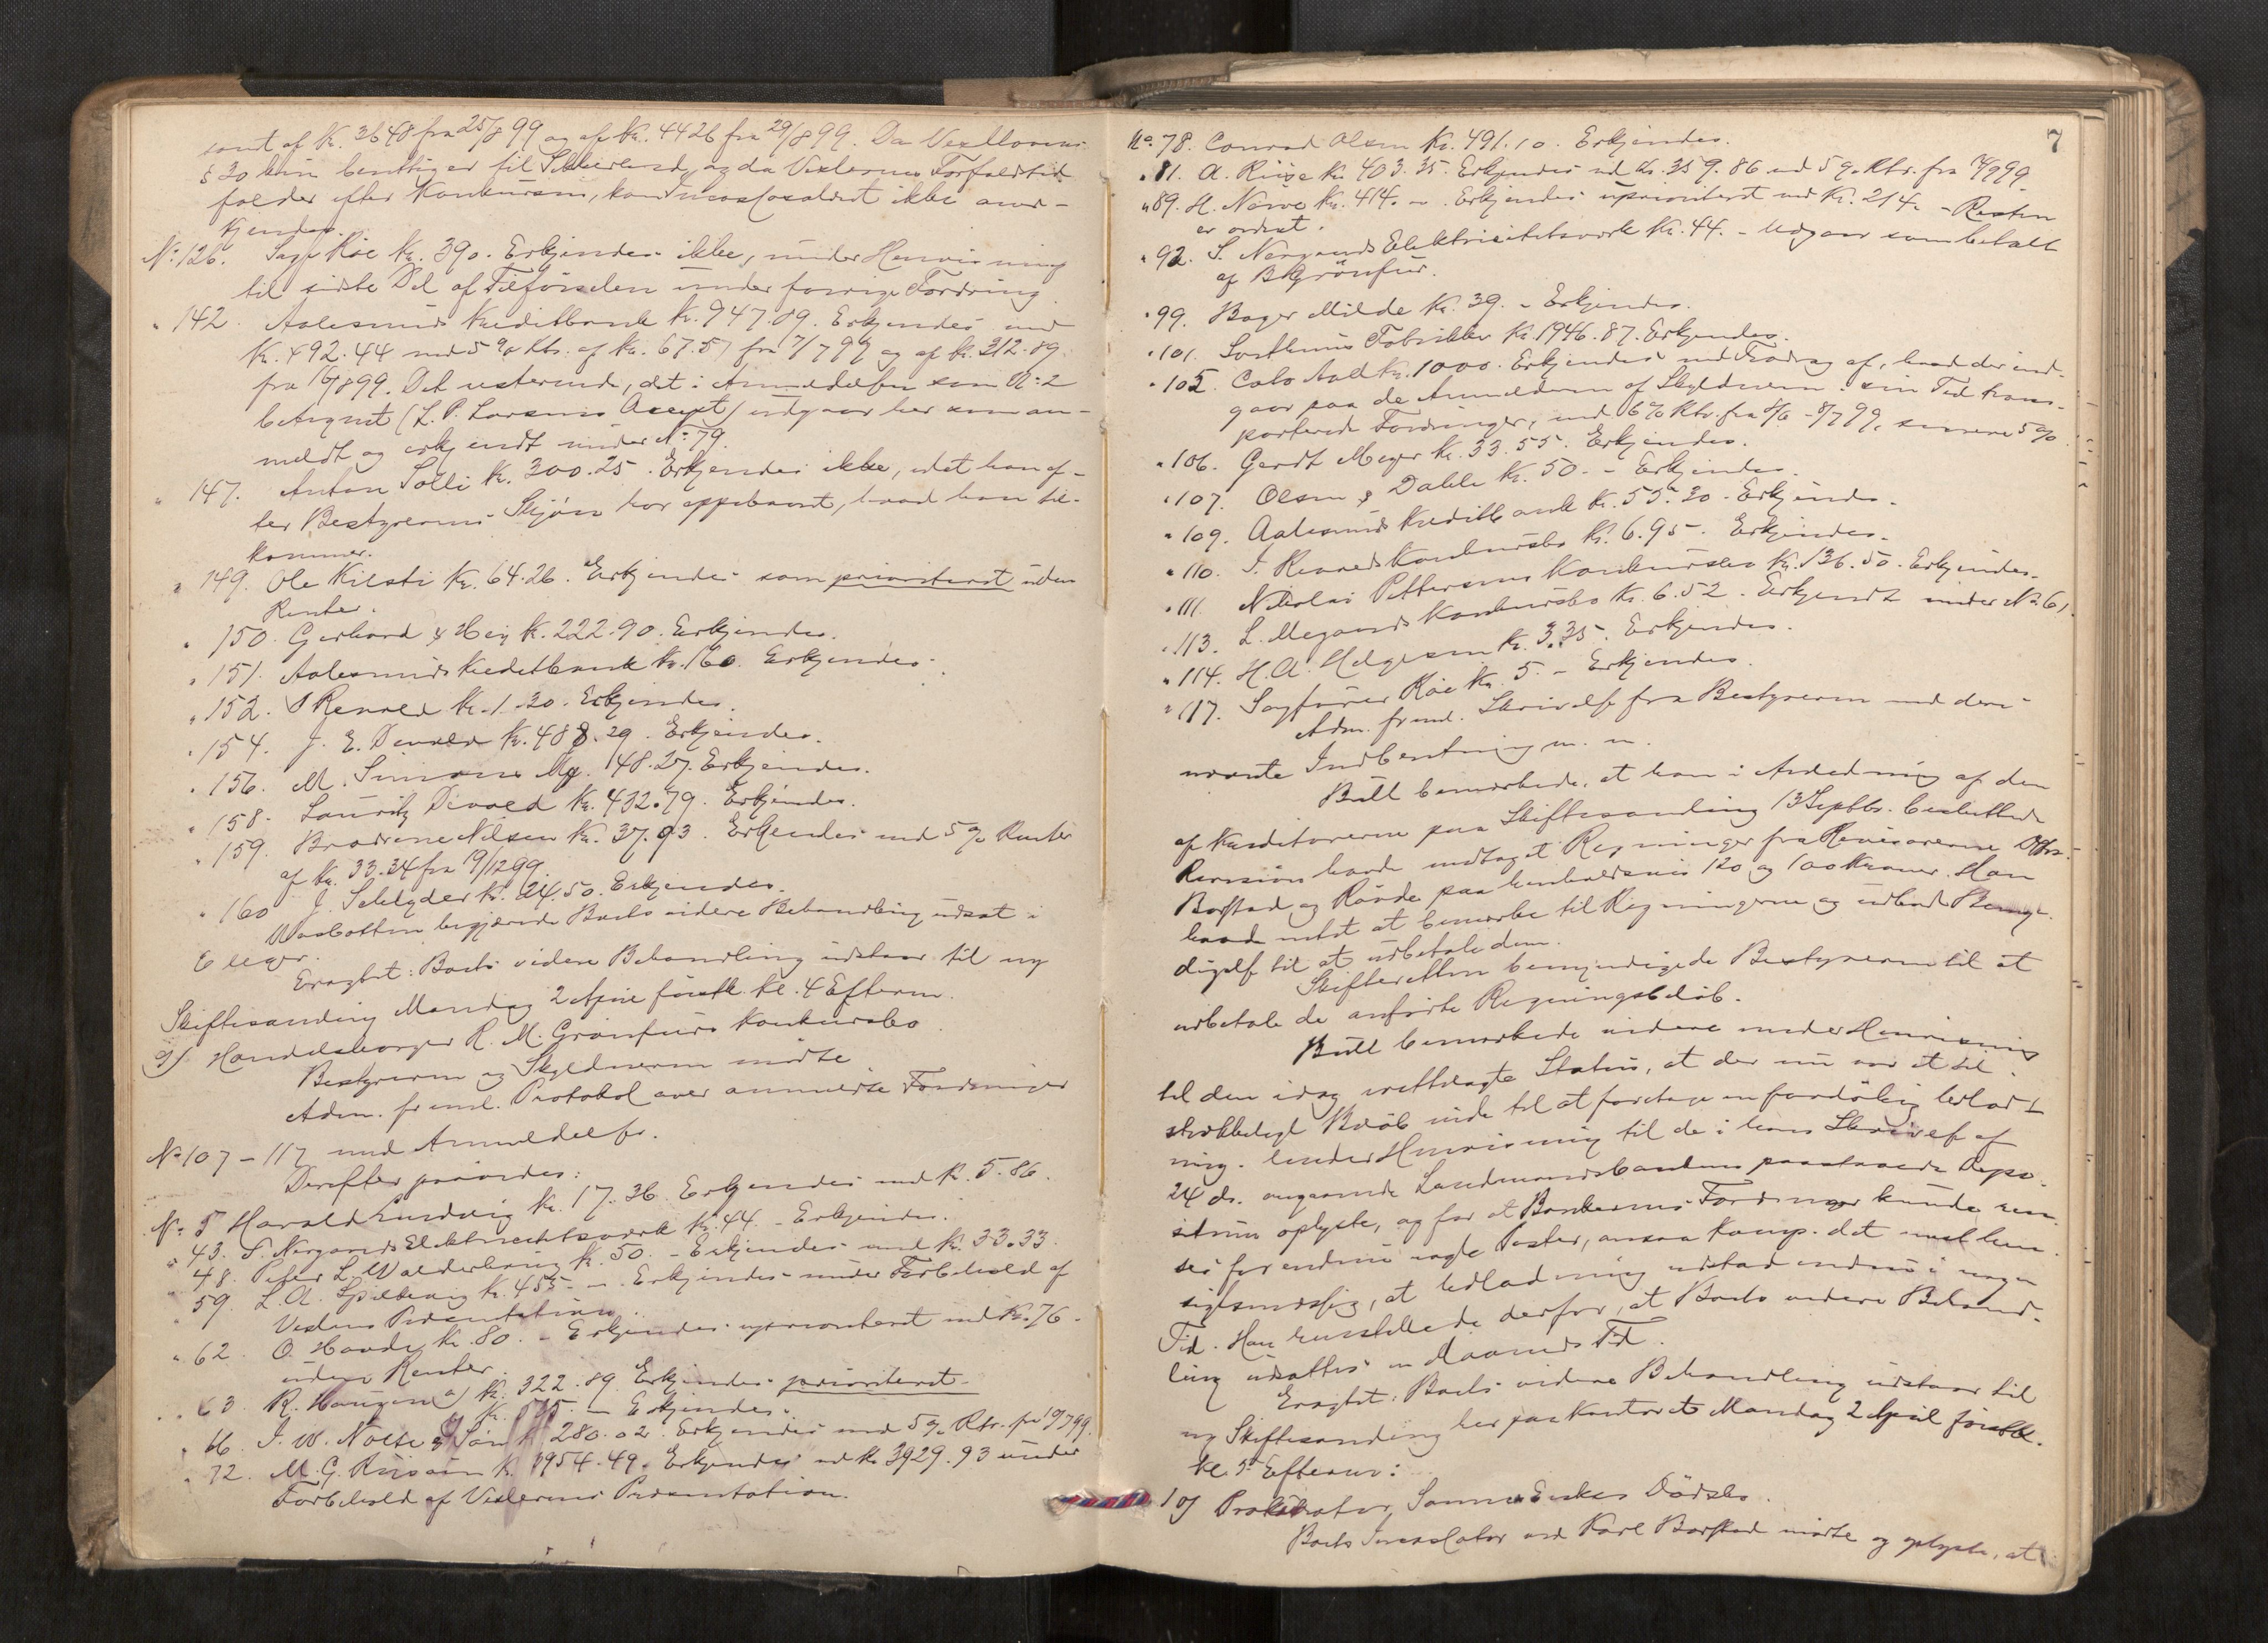 samt af Kr. 3648 fra 25/8 99 og af Kr. 4426 fra 29/8 99. Da Vexellovens
§ 30 kun berettiger til Sikkerhed, og da Vexlernes Forfaldstid
falder efter Konkursen, kan Incassosalæret ikke aner-
kjendes.
No. 126. Sagf. Röe Kr. 390. Erkjendes ikke, under Henvisning
til sidste Del af Tilförselen under forrige Fordring.
" 142. Aalesunds Kreditbank Kr. 947.09. Erkjendes med
Kr. 492.44 med 5 % Rtr. af Kr. 67.57 fra 7/7 99 og af Kr. 312.89
fra 16/8 99. Det resterende, det i Anmeldelsen som No. 2
betegnet (L. P. Larsens Accept) udgaar her som an-
meldt og erkjendt under No. 79.
" 147. Anton Solli Kr. 300.25. Erkjendes ikke, idet han ef-
ter Bestyrerens Skjön har oppebaaret, hvad han til-
kommer.
" 149. Ole Kilsti Kr. 64.26. Erkjendes som prioriteret uden
Renter.
" 150. Gerhard & Hey Kr. 222.90. Erkjendes.
" 151. Aalesunds Kreditbank Kr. 160. Erkjendes.
" 152. Renald Kr. 1.30. Erkjendes.
" 154. J. E. Devold Kr. 488.29. Erkjendes.
" 156. M. Simons 148.27. Erkjendes.
" 158. Lauritz Devold Kr. 432.79. Erkjendes.
" 159. Brødrene Nilsen Kr. 37.93. Erkjendes med 5 % Renter
af Kr. 33.34 fra 19/12 99.
" 160 J. Schlyder Kr. 24.50. Erkjendes.
begjærede Boets videre Behandling udsat i
Eragtet: Boets videre Behandling udstaar til ny
Skiftesamling Mandag 2 April förstk. Kl. 4 Efterm.
9) Handelsborger R. M. Grönfurs Konkursbo.
Bestyreren og Skyldneren mödte
Adm. freml. Protokol over anmeldte Fordringer
No 107 - 117 med Anmeldelser.
Derefter prövedes:
No. 5 Harald Ludvig Kr. 17.36. Erkjendes med Kr. 5.86.
" 43. S. Norgaards Elektricitetsværk Kr. 44. - Erkjendes.
" 48. Peter L. Walderhaug Kr. 50. - Erkjendes med Kr. 33.33.
" 59. L. A. Spilhaug Kr. 455. - Erkjendes under Forbehold af
Vexlens Præsentation.
" 62. O. Haade Kr. 80. - Erkjendes uprioriteret med Kr. 76.
uden Renter.
" 63. R. Haugen a) Kr. 322.89. Erkjendes prioriteret.
- Erkjendes.
" 66. J. W. Nolte & Sön Kr. 280.02. Erkjendes med 5 % Rtr. fra 10/7 99.
" 72. M. G. Riisöen Kr. 3954.49. Erkjendes med Kr. 3929.93 under
Forbehold af Vexlernes Præsentation.
7
No. 78. Conrad Olsen Kr. 491.10. Erkjendes.
" 81. A. Riise Kr. 403.35. Erkjendes med Kr. 359.86 med 5 % Rtr. fra
" 89. H. Norve Kr. 414. - Erkjendes uprioriteret med Kr. 214. - Resten
er ordnet.
" 92. S. Norgaards Elektricitetsværk Kr. 44. - Udgaar som betalt
af B. Grönfur.
" 99. Bager Milde Kr. 39. - Erkjendes.
" 101. Fabrikker Kr. 1946.87. Erkjendes.
" 105. Aall Kr. 1000. Erkjendes med Fradrag af, hvad der ind-
gaar paa de Anmelderen af Skyldneren i sin Tid trans-
porterede Fordringer, med 6 % Rtr. fra 8/6 - 8/7 99, senere 5 %
" 106. Gerdt Meyer Kr. 33.55. Erkjendes.
" 107. Olsen & Dahle Kr. 50. - Erkjendes.
" 109. Aalesunds Kreditbank Kr. 55.30. Erkjendes.
" 110. J. Renneds Konkursbo Kr. 6.95. Erkjendes.
" 111. Nikolai Pettersens Konkursbo Kr. 136.50. Erkjendes.
" 113. L. Megaards Konkursbo Kr. 6.52. Erkjendt under No. 61.
" 114. H. A. Helgesen Kr. 3.35. Erkjendes.
" 117. Sagförer Röe Kr. 5. - Erkjendes.
Adm. freml. Skrivelse fra Bestyreren med deri
nævnte Indberetning m. m.
Bull bemærkede, at han i Anledning af den
af Kreditorerne paa Skiftesamling 13 Septbr. besluttede
Revision havde modtaget Regninger fra Revisorerne
Borstad og Raade paa henholdsvis 120 og 100 Kroner. Han
havde intet at bemærke til Regningerne og udbad Bemyn-
digelse til at udbetale dem.
Skifteretten bemyndigede Bestyreren til at
udbetale de anförte Regningsbelöb.
Bull bemærkede videre under Henvisning
til den idag fremlagte Status, at der nu var et til-
strækkeligt Belöb inde til at foretage en foreløbig Udlod-
ning. Under Henvisning til de i hans Skrivelse af
24 ds. angaaende Landmandsbankens paastaaede Depo-
situm oplyste, og for at Bankernes Fordringer kunde ren-
ses for endnu nogle Poster, ansaa Komp. det mest hen-
sigtsmæssig, at Udlodning udstod endnu i nogen
Tid. Han henstillede derfor, at Boets videre Behand-
ling udsattes en Maaneds Tid.
Eragtet: Boets videre Behandling udstaar til
ny Skiftesamling her paa Kontoret Mandag 2 April förstk.
Kl. 5 Efterm:
10) Prokurator Dödsbo.
Boets Incassator ved Karl Borstad mödte og oplyste, at